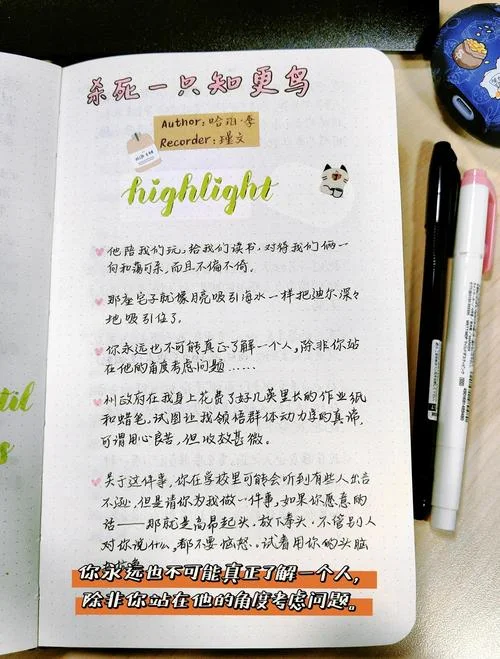 杀死一只知更鸟
Author:哈珀·李
Recorder:瑾文
highlight
他陪我们玩,给我们读书,对待我们俩一
向和蔼可亲,而且不偏不倚。
那座宅子就像月亮吸引海水一样把迪尔深深
地吸引住了。
你永远也不可能真正了解一个人,除非你站
在他的角度考虑问题……
州政府在我身上花费了好几英里长的作业纸
和蜡笔,试图让我领悟群体动力学的真谛,
可谓用心良苦,但收效甚微。
关于这件事,你在学校里可能会听到有些人出言
不逊,但是请你为我做一件事,如果你愿意的
话——那就是高昂起头,放下拳头。不管别人
对你说什么,都不要恼怒。试着用你的头脑
你永远也不可能真正了解一个人,
除非你站在他的角度考虑问题。
til
s